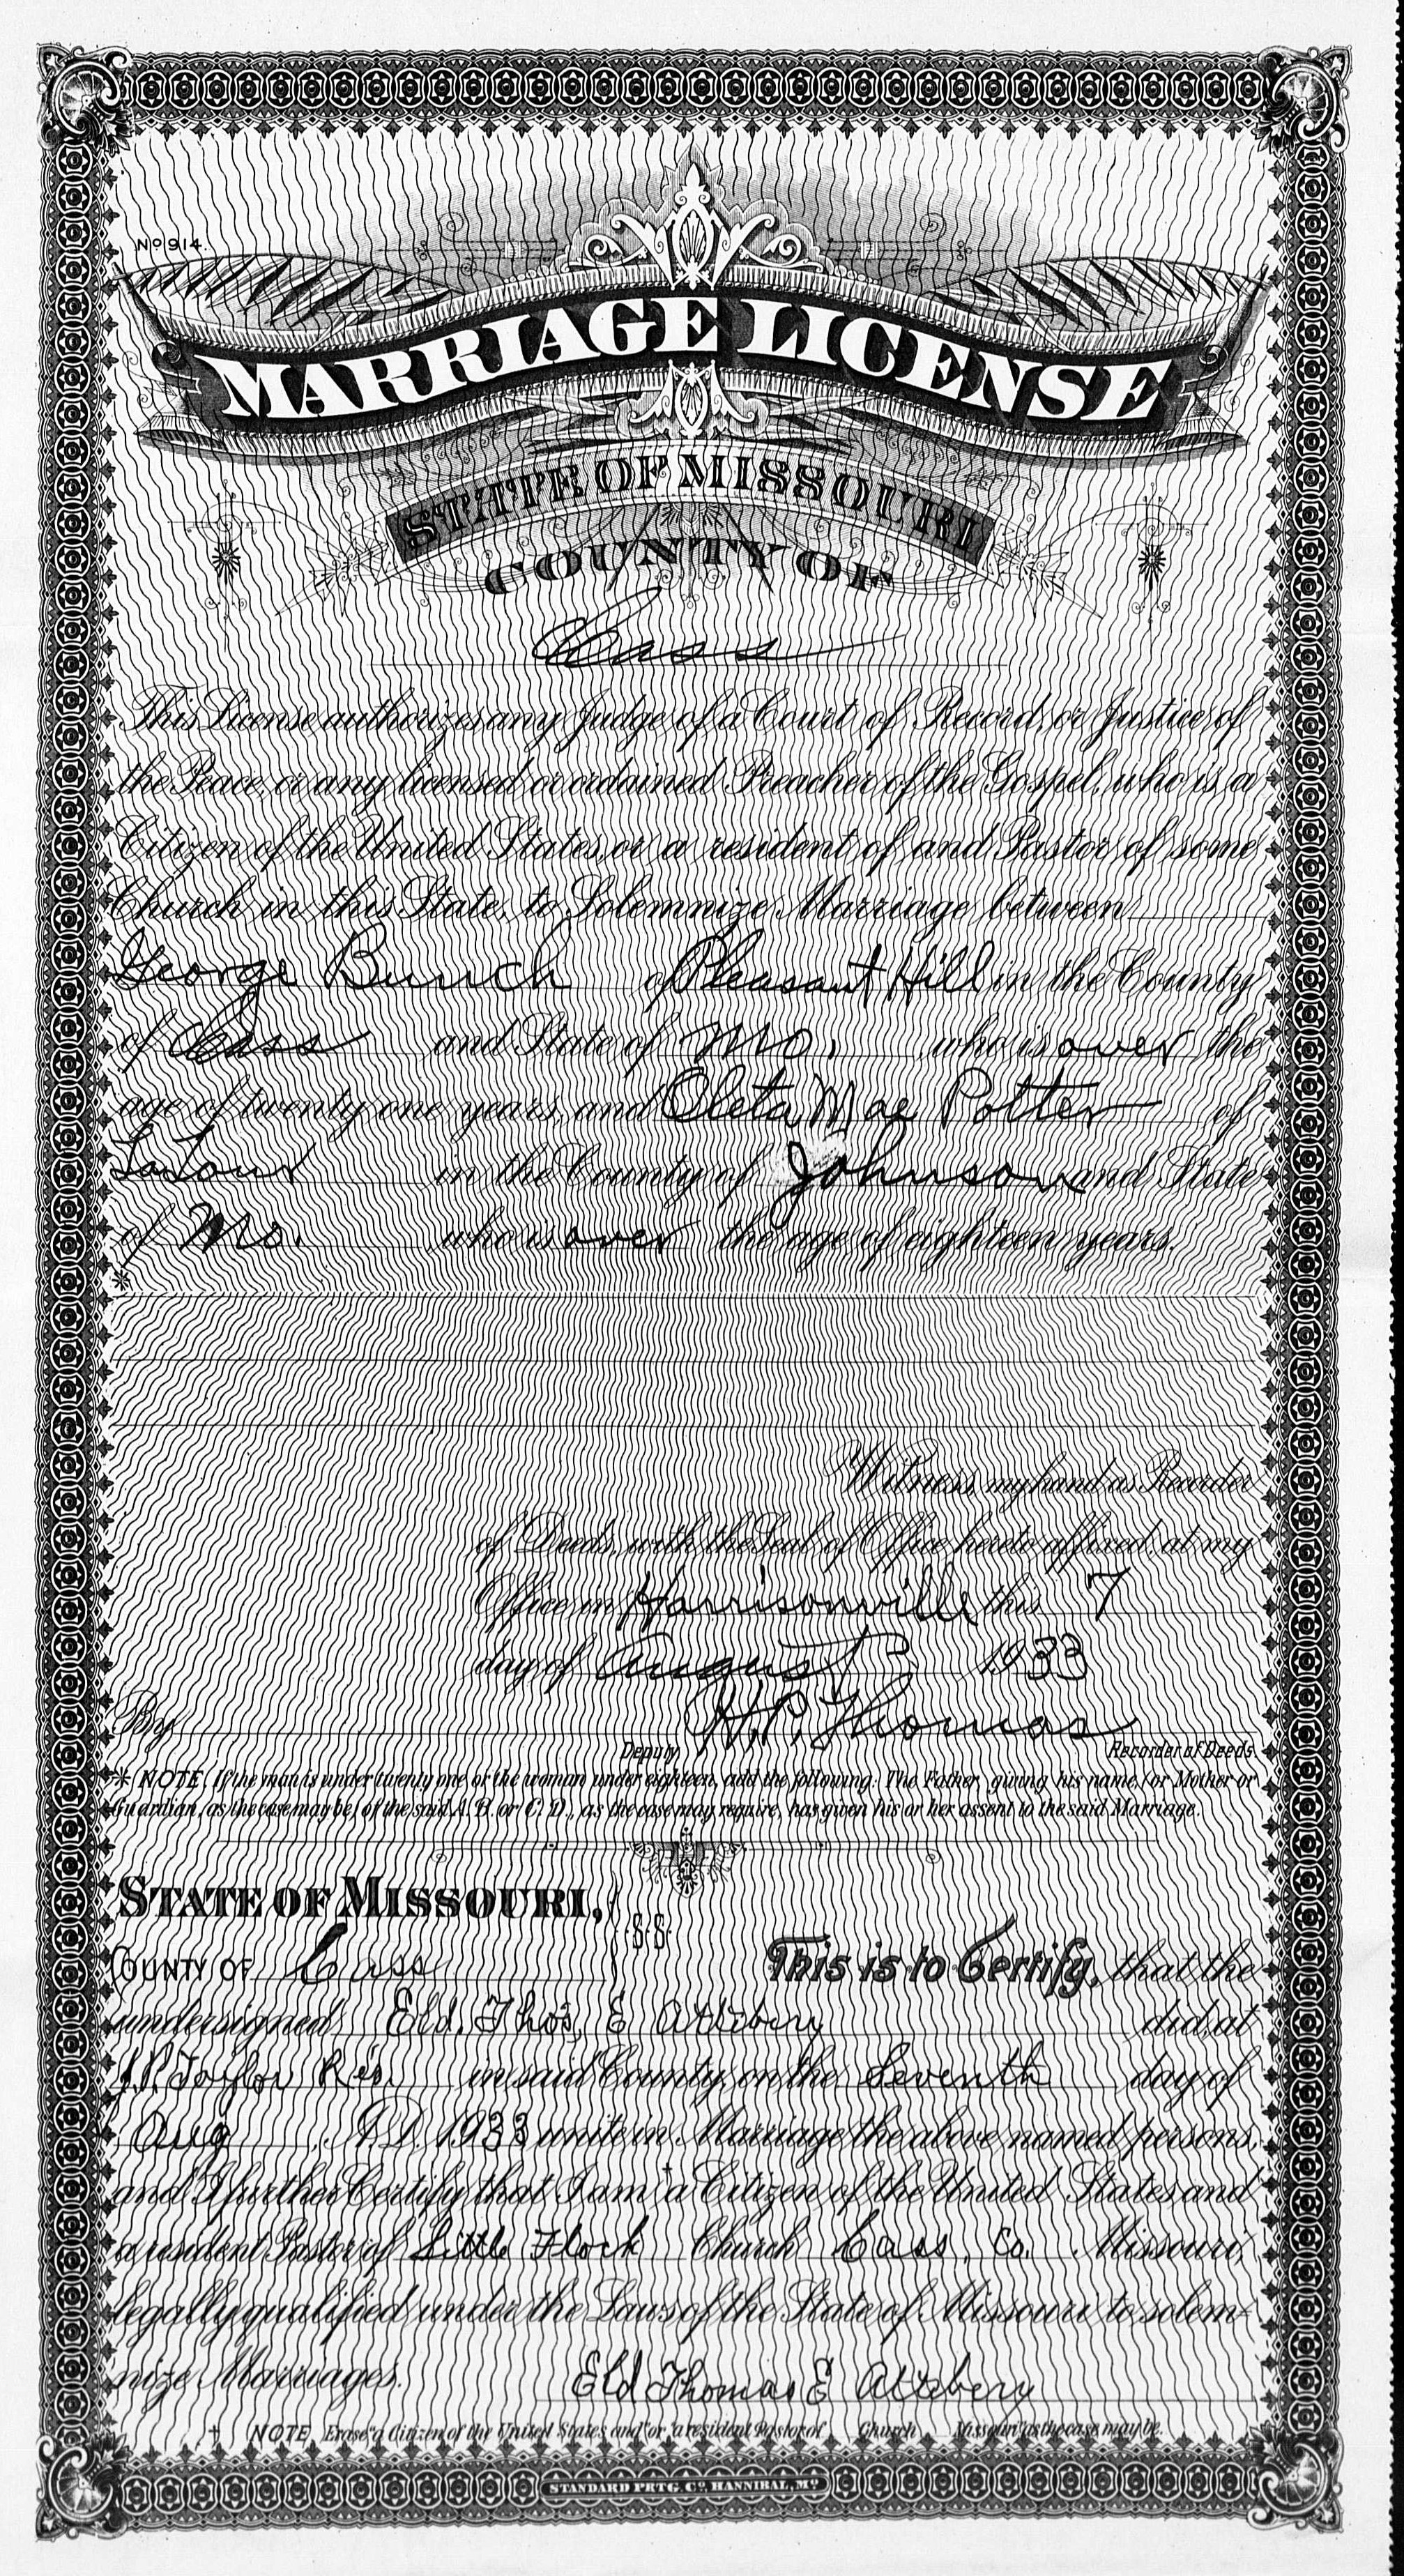 No 914.
MARRIAGE LICENSE
STATE OF MISSOURI
COUNTY OF
Cass
This License authorizes any Judge of a Court of Record, or Justice of
the Peace, or any licensed or ordained Preacher of the Gospel, who is a
Citizen of the United States, or a resident of and Pastor of some
Church in this State, to Solemnize Marriage between
George Bunch of Pleasant Hill in the County
of Cass and State of Mo. who is over the
age of twenty one years, and Oleta Mae Potter of
LaTour in the County of Johnson and State
of Mo. who is over the age of eighteen years.
*
Witness, my hand as Recorder
of Deeds, with the Seal of Office hereto affixed, at my
Office in Harrisonville this 7
day of August 1933
By H.P. Thomas
Deputy Recorder of Deeds.
* NOTE. If the man is under twenty one or the woman under eighteen, add the following: The Father, giving his name, (or Mother or
Guardian, as the case may be) of the said A. B. or C. D., as the case may require, has given his or her assent to the said Marriage.
STATE OF MISSOURI, } S.S.
COUNTY OF Cass This is to Certify, that the
undersigned Eld. Thos. E Attebery did, at
J.P. Taylor Res. in said County, on the Seventh day of
Aug A.D. 1933 unite in Marriage the above named persons,
and I further Certify that I am + a Citizen of the United States and
a resident Pastor of Little Flock Church Cass Co. Missouri,
legally qualified under the Laws of the State of Missouri to solem-
nize Marriages.
Eld Thomas E Attebery
+ NOTE, Erase "a Citizen of the United States and" or "a resident Pastor of Church Missouri" as the case may be.
STANDARD PRTG. CO. HANNIBAL, MO